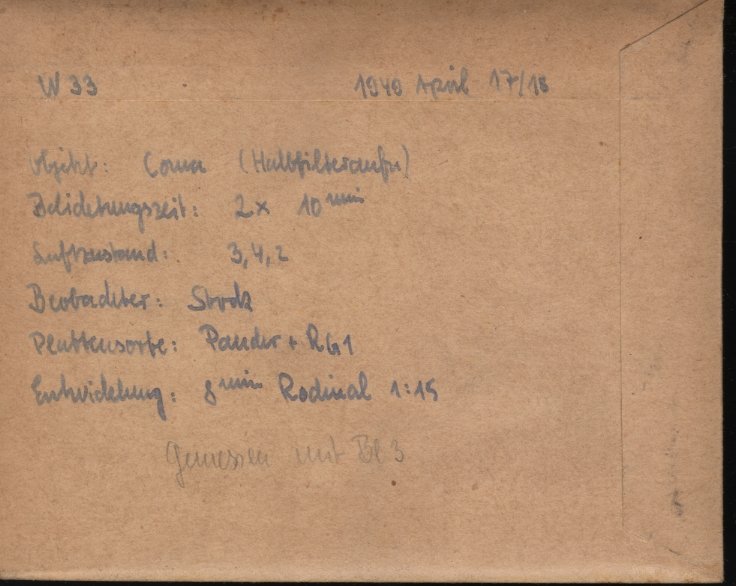 W 33 1949 April 17/18
Objekt: Coma (Halbfilteraufn)
Belichtungszeit: 2x 10 min
Luftzustand: 3,4,2
Beobachter: Stock
Plattensorte: Pander + RG1
Entwicklung: 8 min Rodinal 1:15
Gemessen mit Bl 3